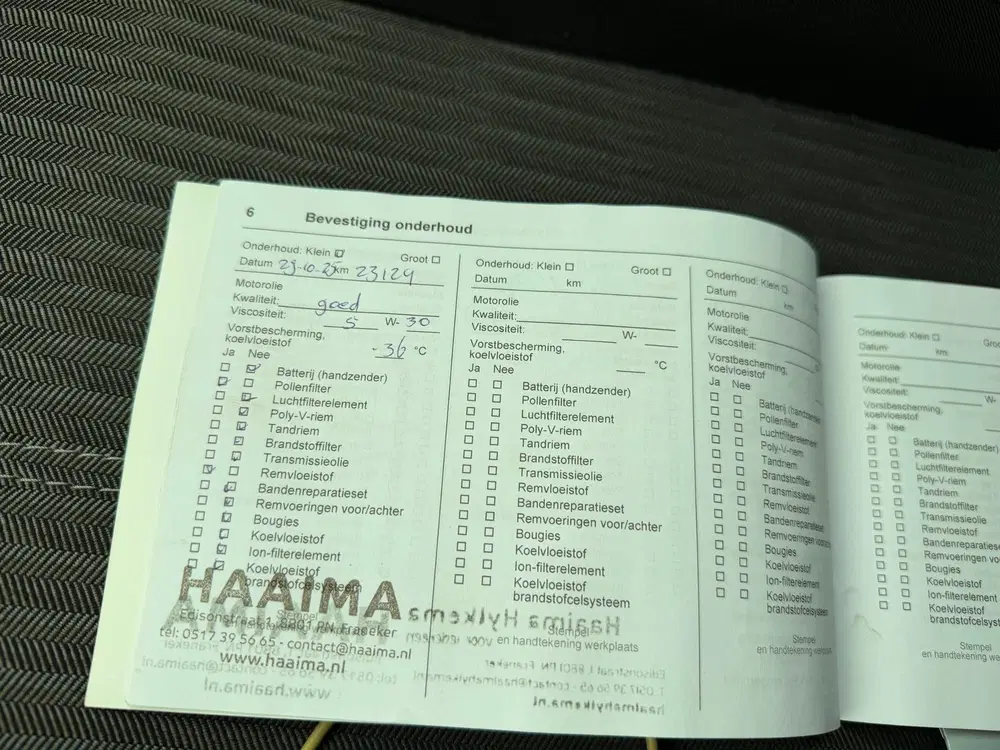 6 Bevestiging onderhoud
Onderhoud: Klein Groot
Datum km 23129
Motorolie
Kwaliteit: goed
Viscositeit: 5 W- 30
Vorstbescherming,
koelvloeistof -36 °C
Ja Nee
Batterij (handzender)
Pollenfilter
Luchtfilterelement
Poly-V-riem
Tandriem
Brandstoffilter
Transmissieolie
Remvloeistof
Bandenreparatieset
Remvoeringen voor/achter
Bougies
Koelvloeistof
Ion-filterelement
Koelvloeistof
brandstofcelsysteem
HAAIMA
Stempel
Edisonstraat 1, 8801 PN Franeker
tel: 0517 39 56 65 - contact@haaima.nl
www.haaima.nl
Onderhoud: Klein Groot
Datum km
Motorolie
Kwaliteit:
Viscositeit: W-
Vorstbescherming,
koelvloeistof °C
Ja Nee
Batterij (handzender)
Pollenfilter
Luchtfilterelement
Poly-V-riem
Tandriem
Brandstoffilter
Transmissieolie
Remvloeistof
Bandenreparatieset
Remvoeringen voor/achter
Bougies
Koelvloeistof
Ion-filterelement
Koelvloeistof
brandstofcelsysteem
Haaima Hylkema
Stempel
en handtekening werkplaats
Onderhoud: Klein
Datum km
Motorolie
Kwaliteit:
Viscositeit:
Vorstbescherming,
koelvloeistof
Ja Nee
Batterij
Pollenfilter
Luchtfilterelement
Poly-V-riem
Tandriem
Brandstoffilter
Transmissieolie
Remvloeistof
Bandenreparatieset
Remvoeringen
Bougies
Koelvloeistof
Ion-filterelement
Koelvloeistof
brandstofcelsysteem
Stempel
en handtekening
Onderhoud: Klein
Datum km
Motorolie
Kwaliteit:
Viscositeit: W-
Vorstbescherming,
koelvloeistof
Ja Nee
Batterij (handzender)
Pollenfilter
Luchtfilterelement
Poly-V-riem
Tandriem
Brandstoffilter
Transmissieolie
Remvloeistof
Bandenreparatieset
Remvoeringen
Bougies
Koelvloeistof
Ion-filterelement
Koelvloeistof
Stempel
en handtekening